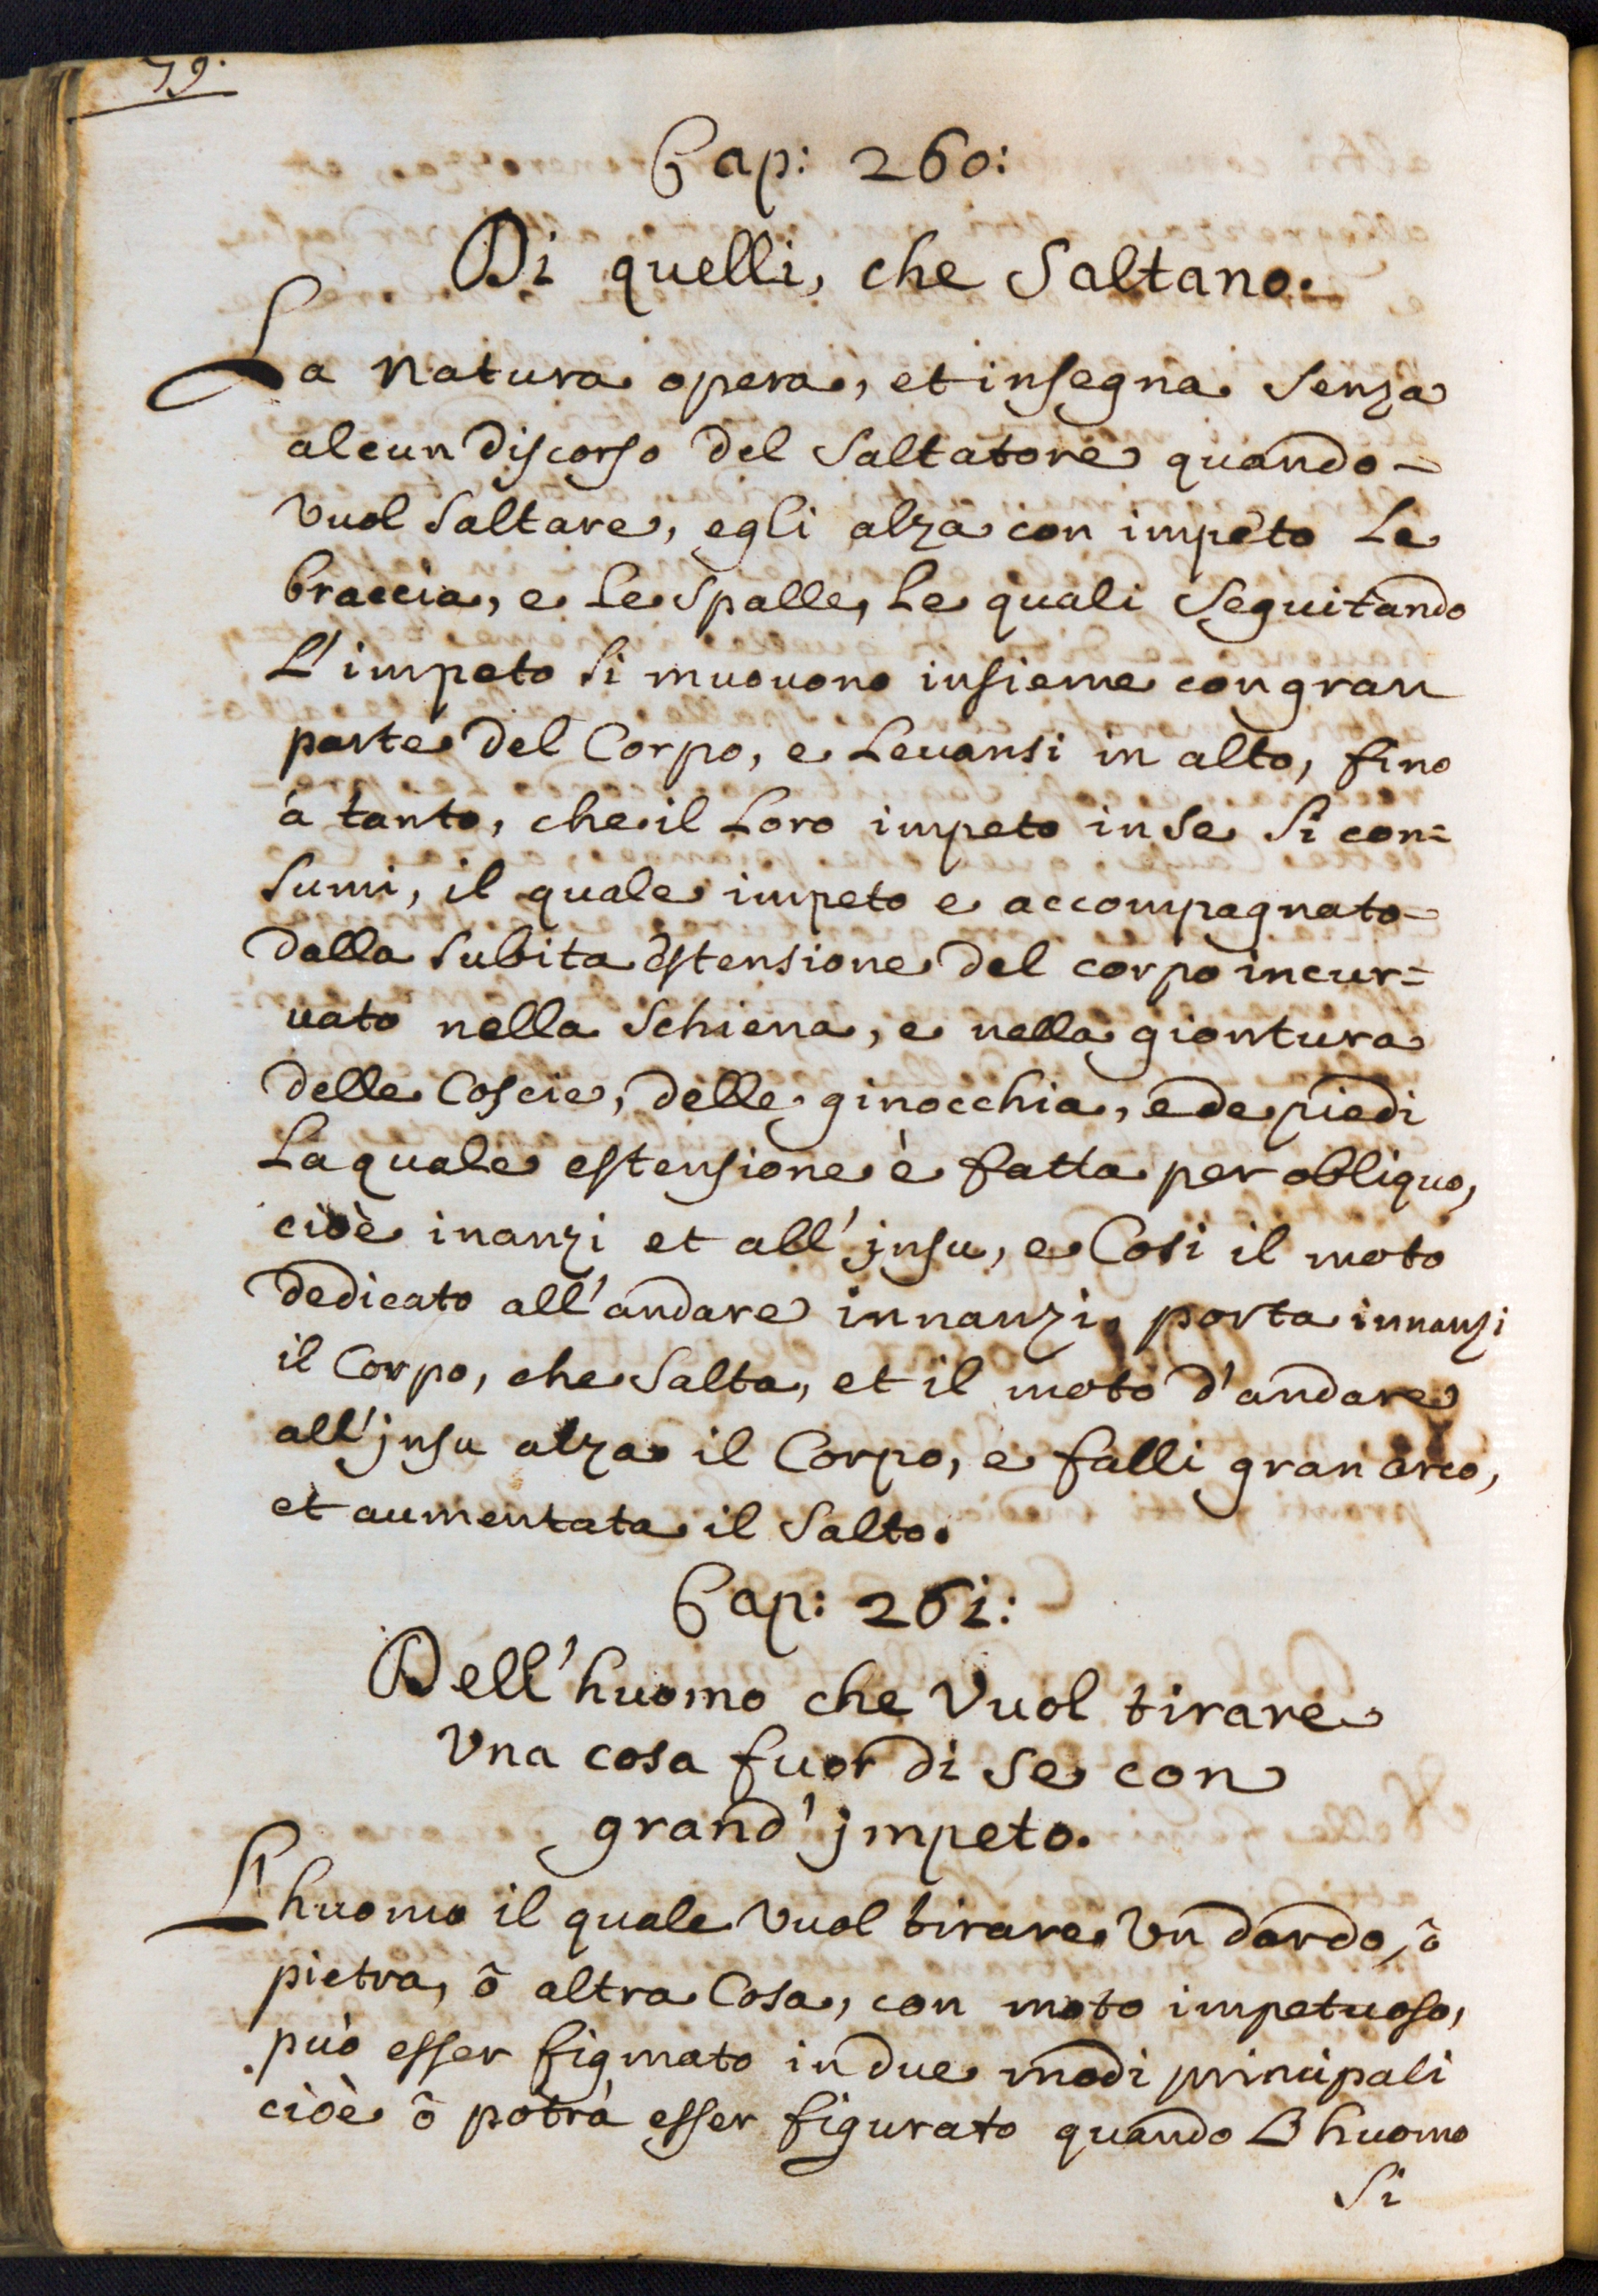 79.
Cap: 260:
Di quelli, che Saltano.
La Natura opera, et insegna senza
alcun discorso del Saltatore quando-
vuol Saltare, egli alza con impeto Le
braccia, e Le Spalle, Le quali Seguitando
L'impeto Si muouono insieme con gran
parte del Corpo, e Leuansi in alto, fino
à tanto, che il Loro impeto in se Si con=
Sumi, il quale impeto e accompagnato-
dalla Subita estensione del corpo incur=
uato nella Schiena, e nella giontura
delle Coscie, delle ginocchia, e de piedi
La quale estensione è fatta per obliquo,
cioè inanzi et all'jnsu, e Cosi il moto
dedicato all'andare innanzi, porta innanzi
il Corpo, che Salta, et il moto d'andare
all'jnsu alza il Corpo, e falli gran arco,
et aumentata il Salto.
Cap: 26i:
Dell'huomo che Vuol tirare
Vna cosa fuor di se con
grand'jmpeto.
L'huomo il quale Vuol tirare Vn dardo, ò
pietra, ò altra Cosa, con moto impetuoso,
può esser figurato in due modi principali
cioè ò potrà esser figurato quando L'huomo
Si